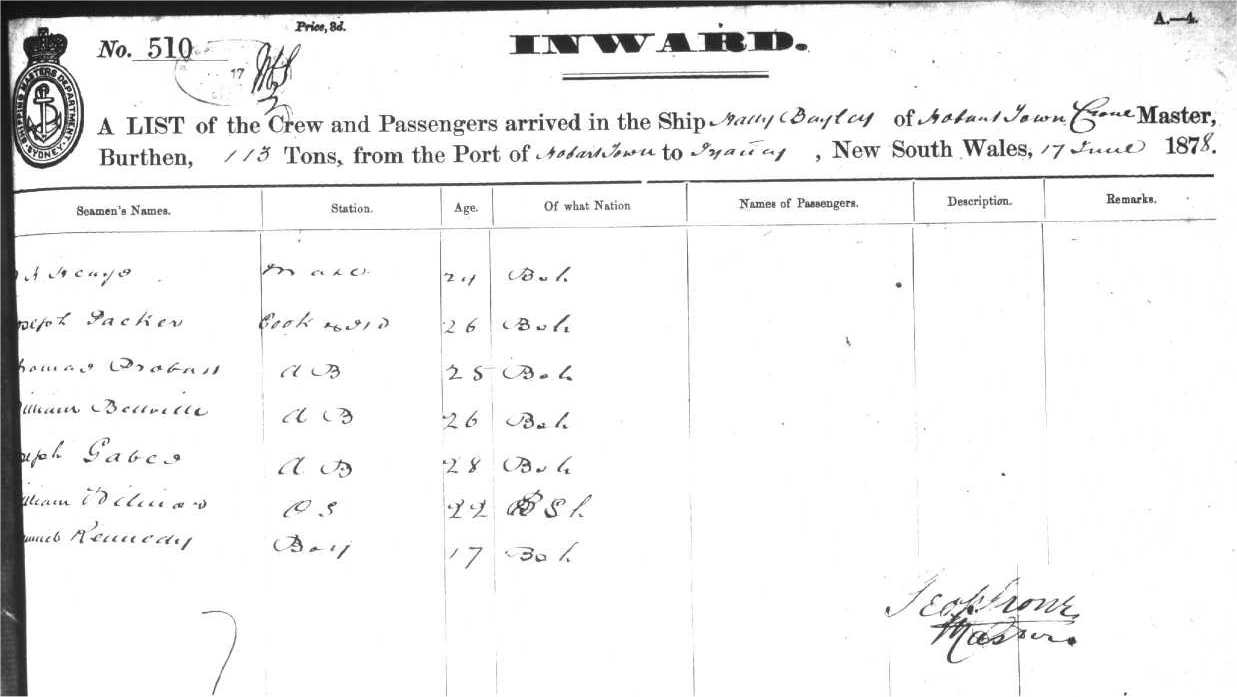 Price, 3d.
A.—4.
No. 510
INWARD.
17
SHIPPING MASTERS DEPARTMENT SYDNEY
A LIST of the Crew and Passengers arrived in the Ship Harry Bayley of Hobart Town Crone Master,
Burthen, 113 Tons, from the Port of Hobart Town to Sydney, New South Wales, 17 June 1878.
Seamen's Names. Station. Age. Of what Nation Names of Passengers. Description. Remarks.
Mate 24 Bsh
oseph Packer Cook 26 Bsh
homas A B 25 Bsh
illiam Bellville A B 26 Bsh
seph A B 28 Bsh
illiam O S 22 BSh
Kennedy Boy 17 Bsh
7
Geo Crone
Master